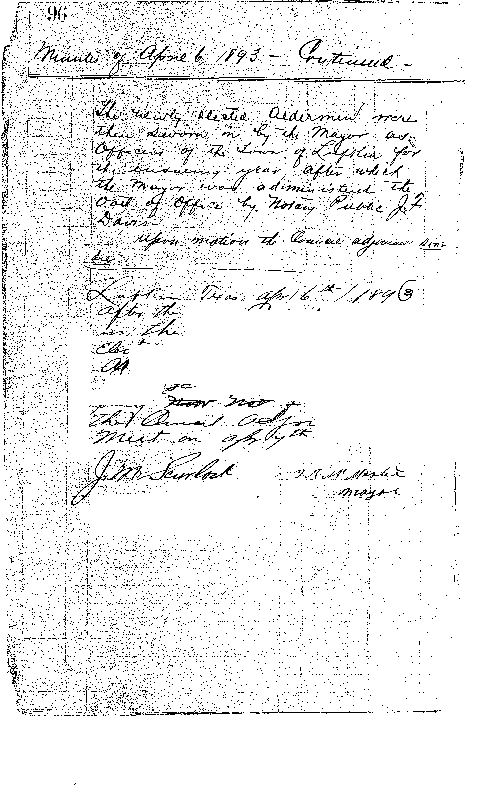 96
Minutes of April 6 1893 - Continued -
The newly elected Aldermen were
then sworn in by the Mayor as
Officers of the Town of Lufkin for
the ensuing year after which
the Mayor was administered the
Oath of Office by Notary Public J. F.
Davis
Upon motion the Council adjourn sine
die
Lufkin Texas apr 6th / 1893
after the
in the
the Council Adjor
Meet on apr 7th
J. M. Scurlock
Mayor